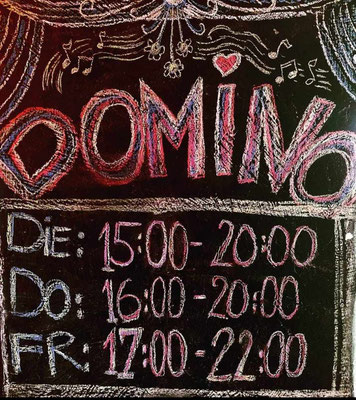 DOMiNO
DiE: 15:00-20:00
DO: 16:00-20:00
FR: 17:00-22:00